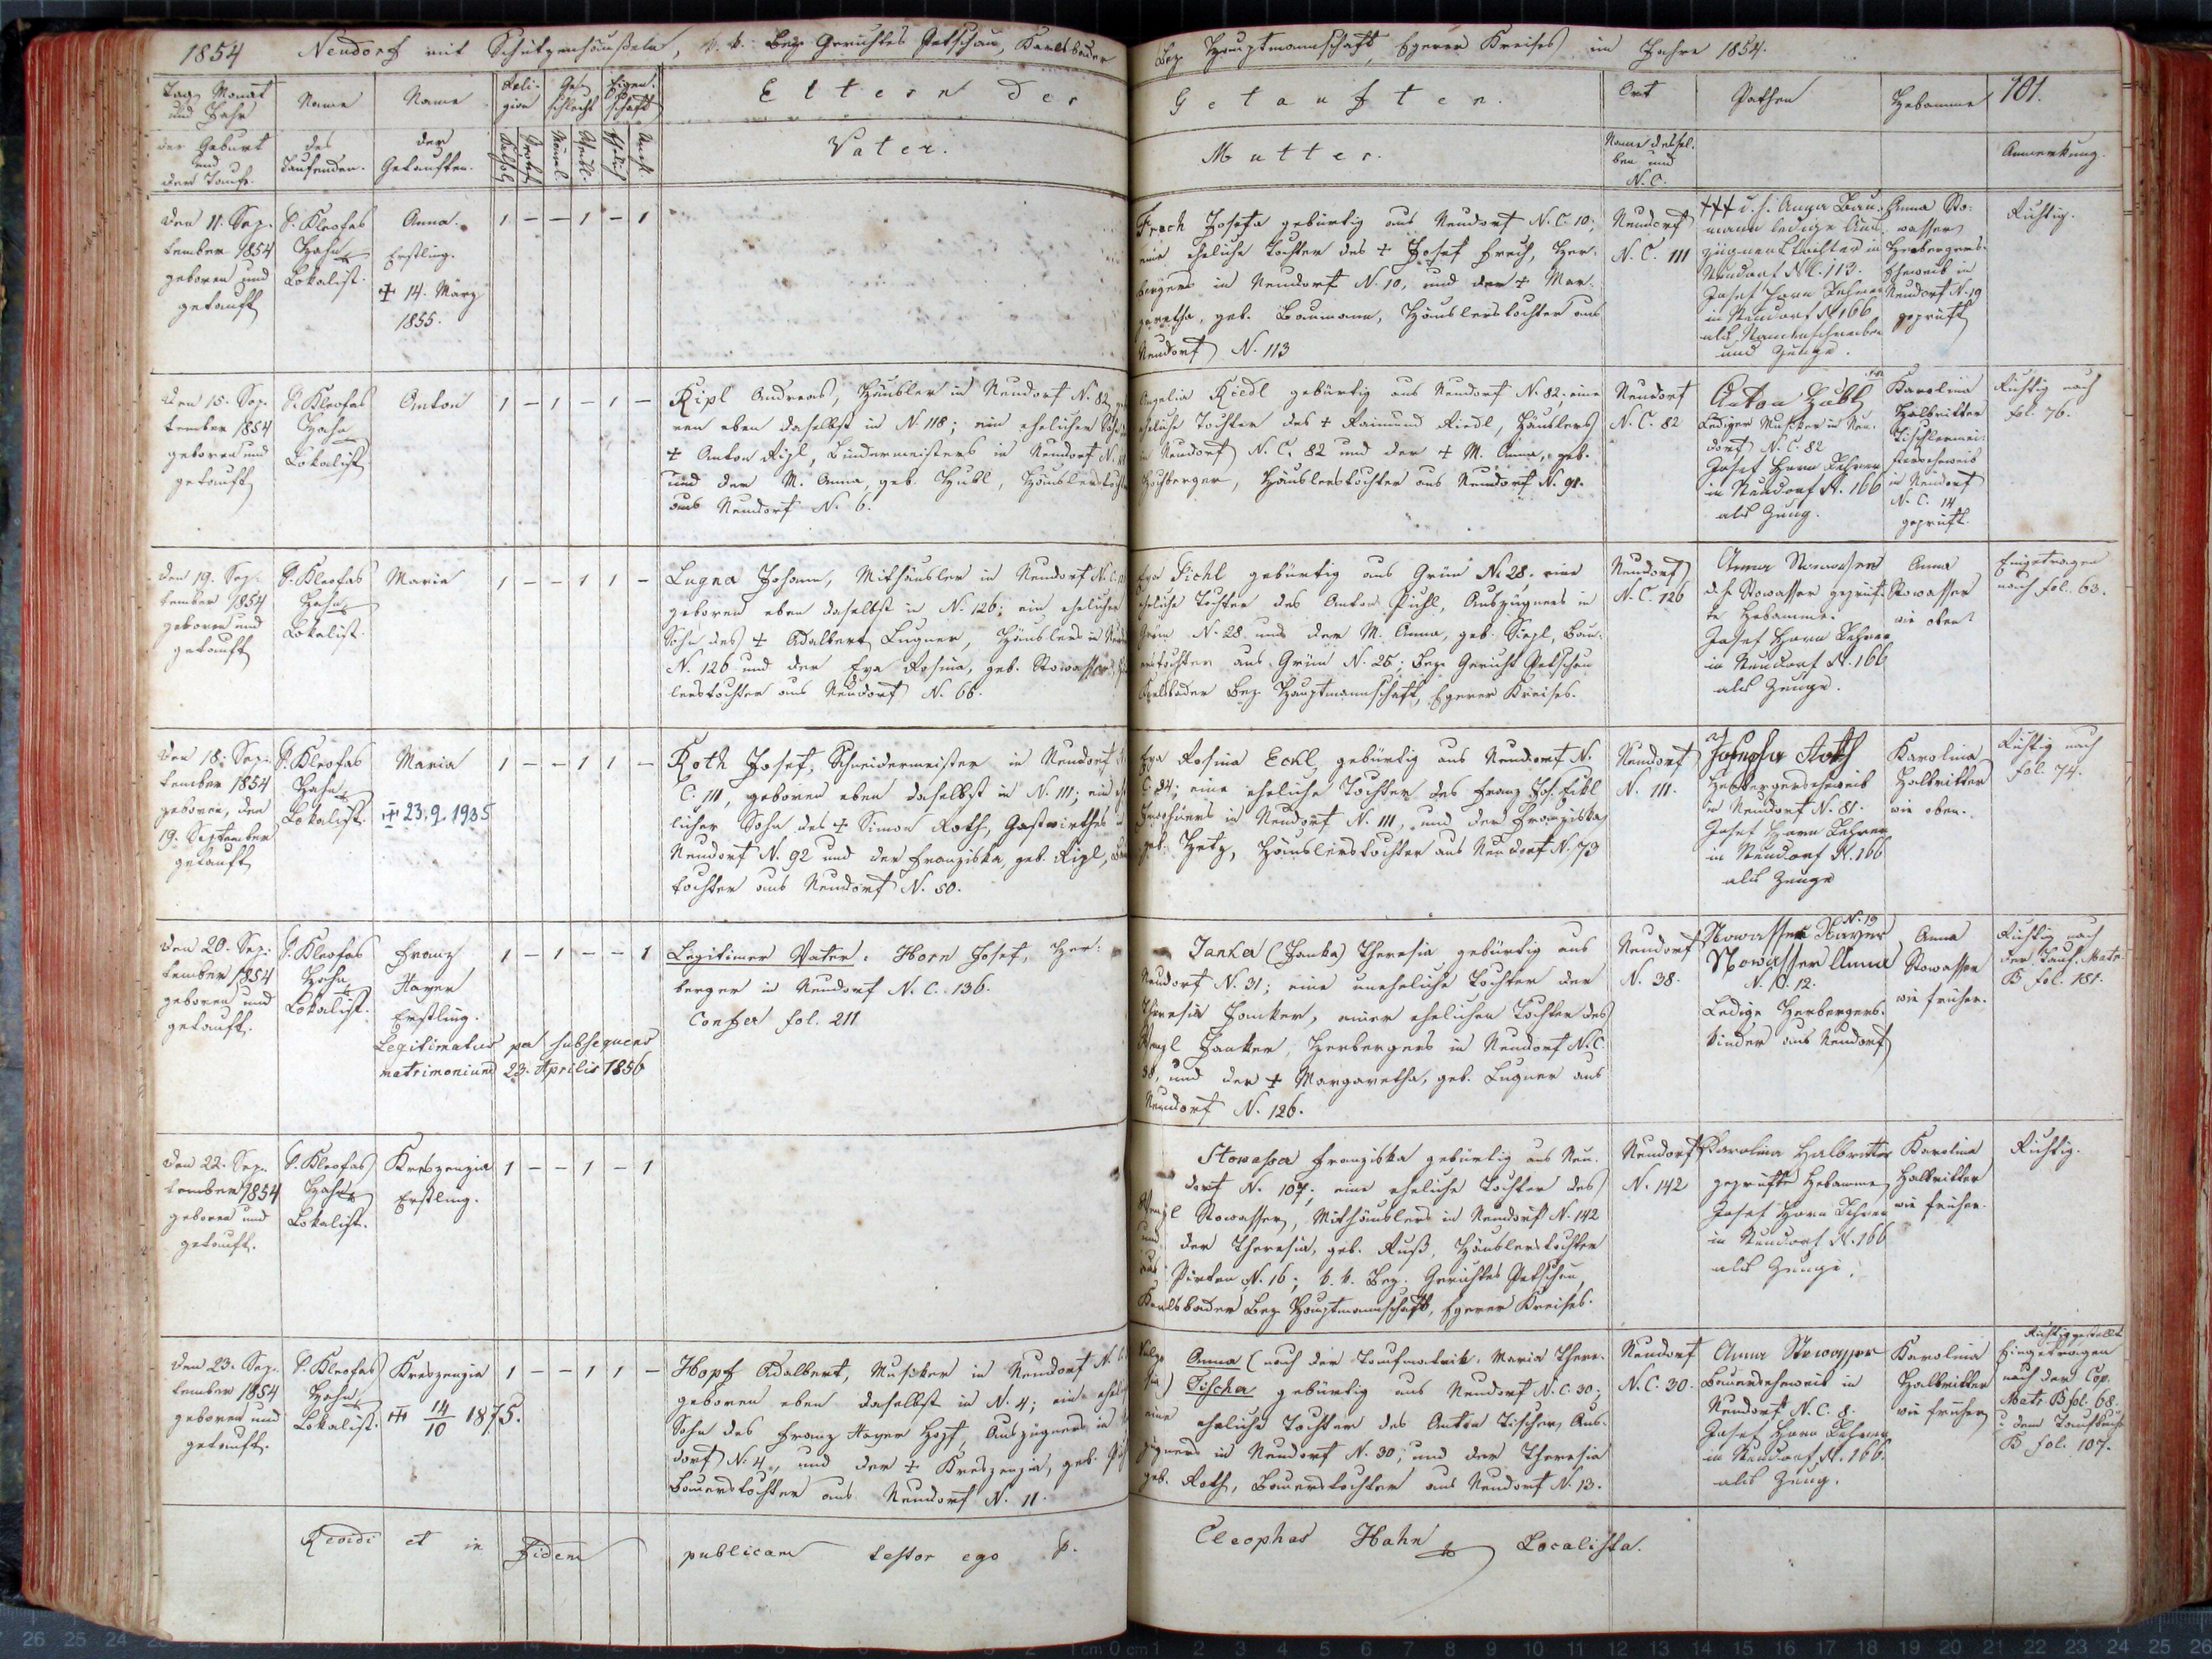 1854 Neudorf mit Schützenhäußeln, k. k. Bez. Gerichtes Petschau, Karlsbader
Bez. Hauptmannschaft, Egerer Kreises im Jahre 1854.
Tag, Monat
und Jahr
der Geburt
und
der Taufe.
Name
des
Taufenden.
Name
der
Getauften.
Reli-
gion
Ge-
schlecht
Eigen-
schaft
Eltern der
Getauften.
Vater.
Mutter.
Ort
Name dessel-
ben und
N. C.
Pathen
Hebamme
101.
Anmerkung.
den 11. Sep-
tember 1854
geboren und
getauft
P. Kleofas
Hahn
Lokalist.
Anna.
Erstling.
+ 14. März
1855.
1 – – 1 – 1
Frech Josefa gebürtig aus Neudorf N. C. 10;
eine eheliche Tochter des + Josef Frech, Her-
bergers in Neudorf N. 10, und der + Mar-
garetha, geb. Baumann, Häuslerstochter aus
Neudorf N. 113
Neudorf
N. C. 111
+++ d. h. Anna Bau-
mann ledige Aus-
züglers Tochter in
Neudorf N. C. 113.
Josef Horn Lehrer
in Neudorf N. 166
als Namensschreiber
und Zeuge.
Anna Sto-
wasser
Herbergers-
Eheweib in
Neudorf N. 19
geprüft
Richtig.
den 15. Sep-
tember 1854
geboren und
getauft
P. Kleofas
Hahn
Lokalist
Anton
1 – 1 – 1 –
Ripl Andreas, Häusler in Neudorf N. 82,
ren eben daselbst in N. 118; ein ehelicher Sohn
+ Anton Ripl, Bindermeisters in Neudorf N.
und der M. Anna, geb. Hubl, Häuslerstochter
aus Neudorf N. 6.
Angelia Riedl gebürtig aus Neudorf N. 82; eine
eheliche Tochter des + Raimund Riedl, Häuslers
in Neudorf N. C. 82 und der + M. Anna, geb.
Hochberger, Häuslerstochter aus Neudorf N. 91.
Neudorf
N. C. 82
Anton Hubl
Lediger Musiker in Neu-
dorf N. C. 82
Josef Horn Lehrer
in Neudorf N. 166
als Zeug.
Karolina
Halbritter
Tischlermei-
stersEheweib
in Neudorf
N. C. 14
geprüft.
Richtig nach
fol. 76.
den 19. Sep-
tember 1854
geboren und
getauft
P. Kleofas
Hahn
Lokalist.
Maria
1 – – 1 1 –
Lugna Johann, Mithäusler in Neudorf N. C.
geboren eben daselbst in N. 126; ein ehelicher
Sohn des + Adalbert Lugner, Häuslers in
N. 126 und der Eva Rosina, geb. Stowasser,
lerstochter aus Neudorf N. 66.
Eva Pichl gebürtig aus Grün N. 28. eine
eheliche Tochter des Anton Pichl, Auszügners in
Grün N. 28 und der M. Anna, geb. Siegl, Bau-
erstochter aus Grün N. 25; Bez. Gericht Petschau
Karlsbader Bez. Hauptmannschaft, Egerer Kreises.
Neudorf
N. C. 126
Anna Stowasser
d. h. Stowasser geprüf-
te Hebamme.
Josef Horn Lehrer
in Neudorf N. 166
als Zeuge.
Anna
Stowasser
wie oben
Eingetragen
nach fol. 63.
den 18. Sep-
tember 1854
geboren, den
19. September
getauft
P. Kleofas
Hahn
Lokalist.
Maria
+ 23.9.1935
1 – – 1 1 –
Roth Josef, Schneidermeister in Neudorf
C. 111, geboren eben daselbst in N. 111; ein ehe-
licher Sohn des + Simon Roth, Gastwirthes
Neudorf N. 92 und der Franziska, geb. Ripl,
tochter aus Neudorf N. 50.
Eva Rosina Eckl gebürtig aus Neudorf N.
C. 84; eine eheliche Tochter des Franz Jos. Eckl
Inwohners in Neudorf N. 111, und der Franziska
geb. Hetz, Häuslerstochter aus Neudorf N. 73
Neudorf
N. 111.
Josepha Roth
Herbergerseheweib
in Neudorf N. 81.
Josef Horn Lehrer
in Neudorf N. 166
als Zeuge
Karolina
Halbritter
wie oben.
Richtig nach
fol. 74.
den 20. Sep-
tember 1854
geboren und
getauft.
P. Kleofas
Hahn
Lokalist.
Franz
Xaver
Erstling.
Legitimatus per subsequens
matrimonium 23. Aprilis 1856
1 – 1 – – 1
Legitimer Vater: Horn Josef, Her-
berger in Neudorf N. C. 136.
Confer fol. 211
Janka (Janka) Theresia gebürtig aus
Neudorf N. 31; eine uneheliche Tochter der
Theresia Janker, einer ehelichen Tochter des
Wenzl Janker, Herbergers in Neudorf N. C.
38, und der + Margaretha, geb. Lugner aus
Neudorf N. 126.
Neudorf
N. 38.
N. 19
Stowasser Xaver
Stowasser Anna
N. C. 12.
Ledige Herbergers-
kinder aus Neudorf
Anna
Stowasser
wie früher.
Richtig nach
der Tauf. Matr.
B fol. 181.
den 22. Sep-
tember 1854
geboren und
getauft.
P. Kleofas
Hahn
Lokalist.
Kreszenzia
Erstling.
1 – – 1 – 1
Stowassa Franziska gebürtig aus Neu-
dorf N. 107; eine eheliche Tochter des
Wenzl Stowasser, Mithäuslers in Neudorf N. 142
und der Theresia, geb. Ruß, Häuslerstochter
aus Pirten N. 16; k. k. Bez. Gerichtes Petschau
Karlsbader Bez. Hauptmannschaft, Egerer Kreises.
Neudorf
N. 142
Karolina Halbritter
geprüfte Hebamme
Josef Horn Lehrer
in Neudorf N. 166
als Zeuge.
Karolina
Halbritter
wie früher.
Richtig.
den 23. Sep-
tember 1854
geboren und
getauft.
P. Kleofas
Hahn
Lokalist.
Kreszenzia
+ 14/10 1875.
1 – – 1 1 –
Hopf Adalbert, Musiker in Neudorf N.
geboren eben daselbst in N. 4; ein ehelicher
Sohn des Franz Xaver Hopf, Auszügners in
dorf N. 4, und der + Kreszenzia, geb.
Bauerstochter aus Neudorf N. 11.
Vulgo Anna (nach der Taufmatrik: Maria There-
sia) Tischa gebürtig aus Neudorf N. C. 30;
eine eheliche Tochter des Anton Tischer, Aus-
zügners in Neudorf N. 30; und der Theresia
geb. Roth, Bauerstochter aus Neudorf N. 13.
Neudorf
N. C. 30.
Anna Stowasser
Bauerseheweib in
Neudorf N. C. 8.
Josef Horn Lehrer
in Neudorf N. 166.
als Zeug.
Karolina
Halbritter
wie früher
Richtig gestellt
Eingetragen
nach der Cop.
Matr. B fol. 68.
u. dem Taufbuche
B fol. 107.
Revidi et in Fidem publicam testor ego P. Cleophas Hahn Localista.